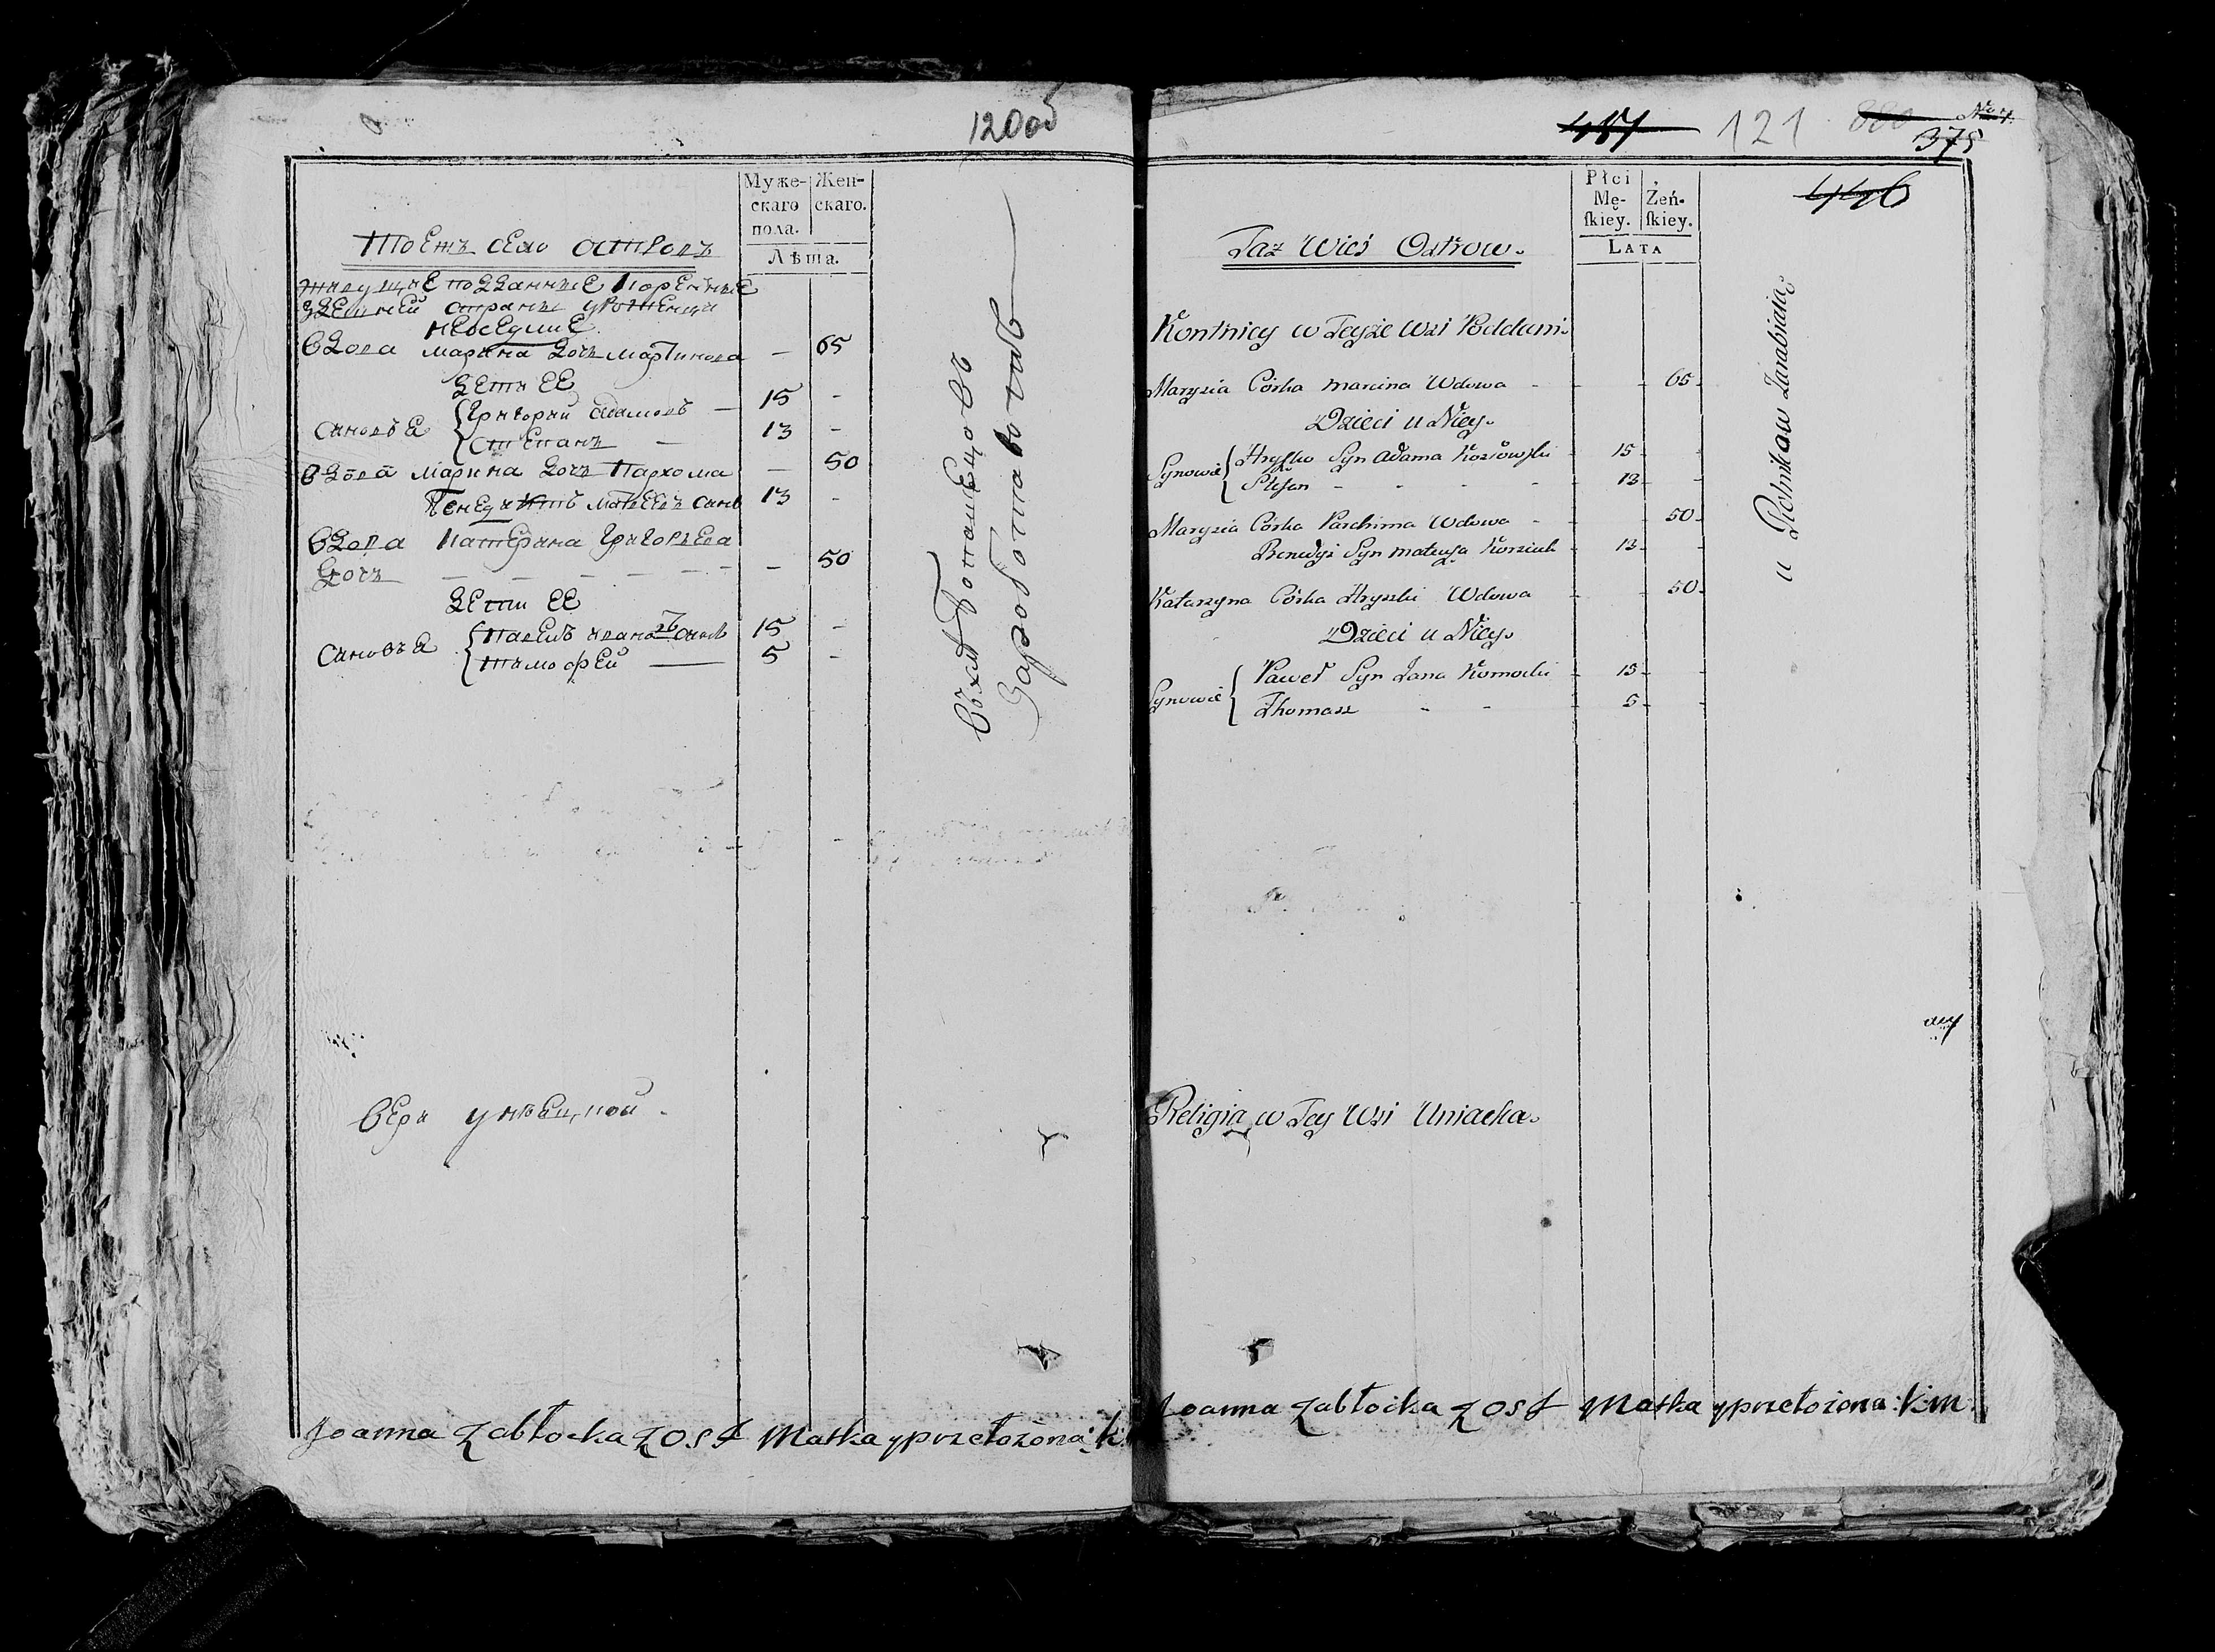 120об
Муже-
скаго
пола.
Жен-
скаго.
Лѣта.
Тоежъ село островъ
живущие подданные коренные
здешней страны уроженци
неоседлие
вдова марина дочъ мартинова — 65
дети ее
сыновѣе { Григорий адамовъ — 15 -
{ Степанъ — 13 -
вдова марина дочъ Пархома — 50
Бенедикть матвеевъ сынъ 13 -
вдова катерина григорьева
дочъ — — — — — — — 50
дети ее
сыновѣе { павелъ ивановъ сынъ 15 -
{ тимофей — 5 -
веры униецкой.
Joanna Zabłocka ZOSS Matka y przełożona: K:
417 121 880 No 4.
375
446
Płci
Mę-
skiey.
Żeń-
skiey.
LATA
Taż Wieś Ostrow.
Kontnicy w Teyże Wsi Poddani.
Marysia Córka Marcina Wdowa - - - 65.
Dzieci u Niey.
Synowie { Hryśko Syn Adama Kozłowski - 15 - -
{ Stefan - - - - - 13 - -
Marysia Córka Parchima Wdowa - - - 50.
Benedyś Syn Mateusza - 13 - -
Katarzyna Córka Hryszki Wdowa - - 50.
Dzieci u Niey.
Synowie { Paweł Syn Jana - 15 - -
{ Thomasz - - - 5 - -
u Rolnikow Zarabiaią
Religia w Tey Wsi Uniacka.
Joanna Zabłocka ZOSS Matka y przełożona: K:M